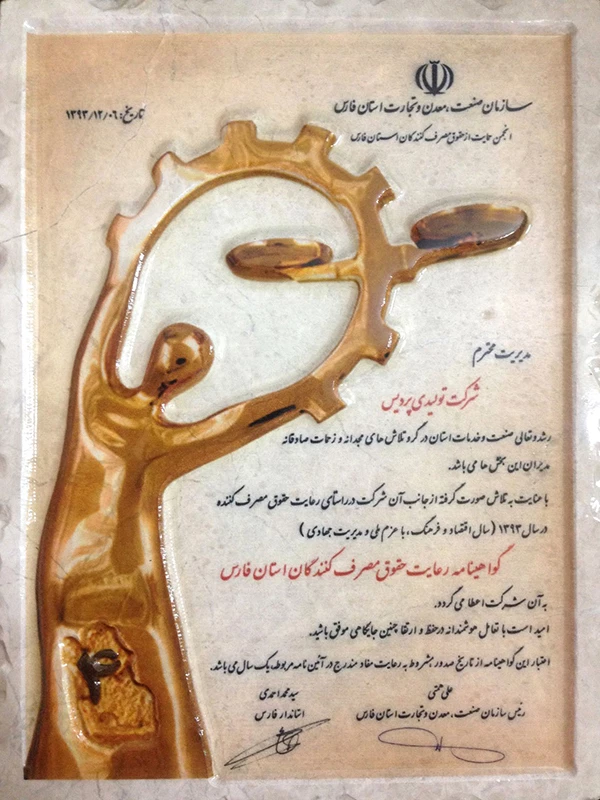 سازمان صنعت، معدن و تجارت استان فارس
تاریخ: ۱۳۹۳/۱۲/۰۶
انجمن حمایت از حقوق مصرف کنندگان استان فارس
مدیریت محترم
شرکت تولیدی پردیس
رشد و تعالی صنعت و خدمات استان در گرو تلاش های مجدانه و زحمات صادقانه
مدیران این بخش ها می باشد.
با عنایت به تلاش صورت گرفته از جانب آن شرکت در راستای رعایت حقوق مصرف کننده
در سال ۱۳۹۳ ( سال اقتصاد و فرهنگ، با عزم ملی و مدیریت جهادی )
گواهینامه رعایت حقوق مصرف کنندگان استان فارس
به آن شرکت اعطا می گردد.
امید است با تعامل هوشمندانه در حفظ و ارتقا چنین جایگاهی موفق باشید.
اعتبار این گواهینامه از تاریخ صدور مشروط به رعایت مفاد مندرج در آئین نامه مربوطه، یک سال می باشد.
علی همتی
رئیس سازمان صنعت، معدن و تجارت استان فارس
سید محمد احمدی
استاندار فارس